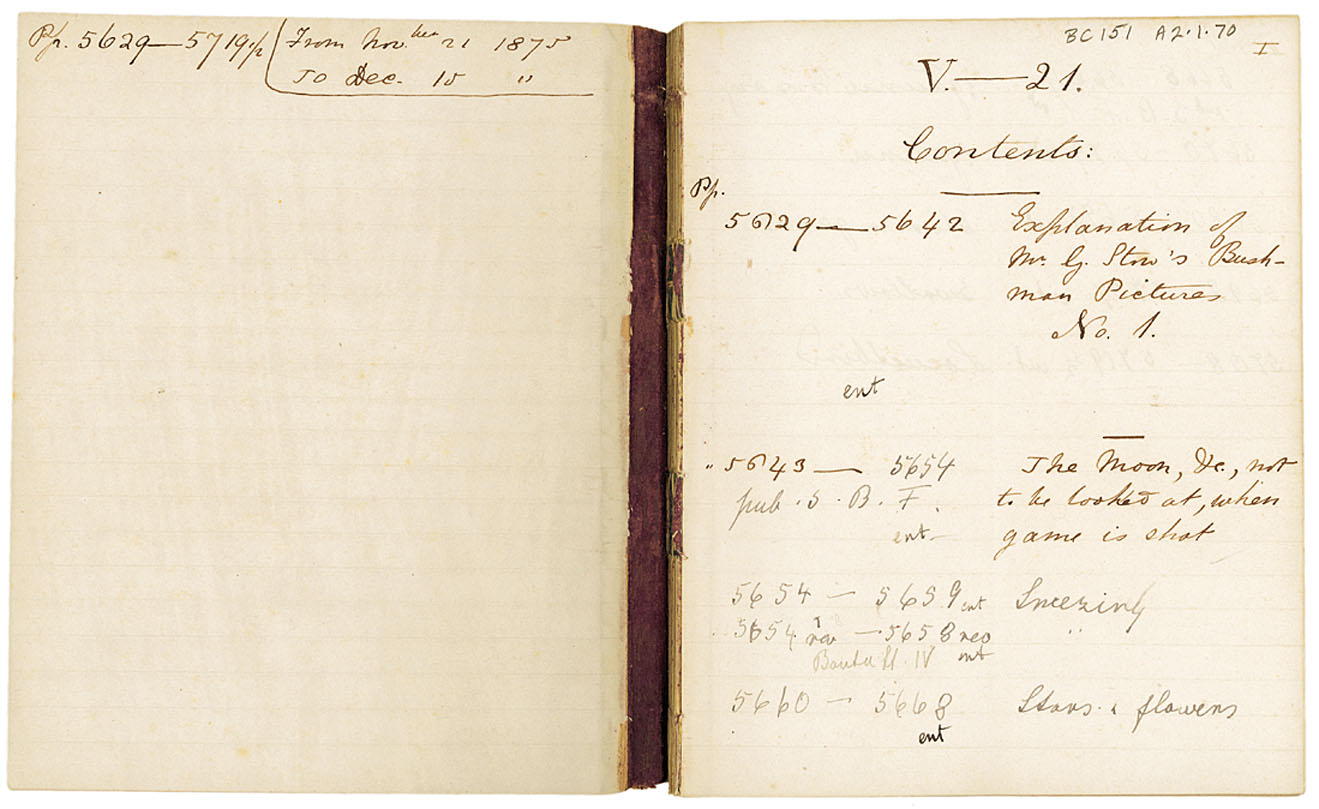 Pp. 5629—5719½ From Nov.ber 21 1875
To Dec. 15 "
BC151 A2.1.70
I
V.—21.
Contents:
Pp.
5629—5642 Explanation of
Mr. G. Stow's Bush-
man Pictures
No. 1.
ent
" 5643 — 5654 The Moon, &c., not
pub. S. B. F. to be looked at, when
ent- game is shot
5654 — 5659 ent Sneezing
5654 rev — 5658 rev "
ent
5660 — 5668 Stars & flowers
ent